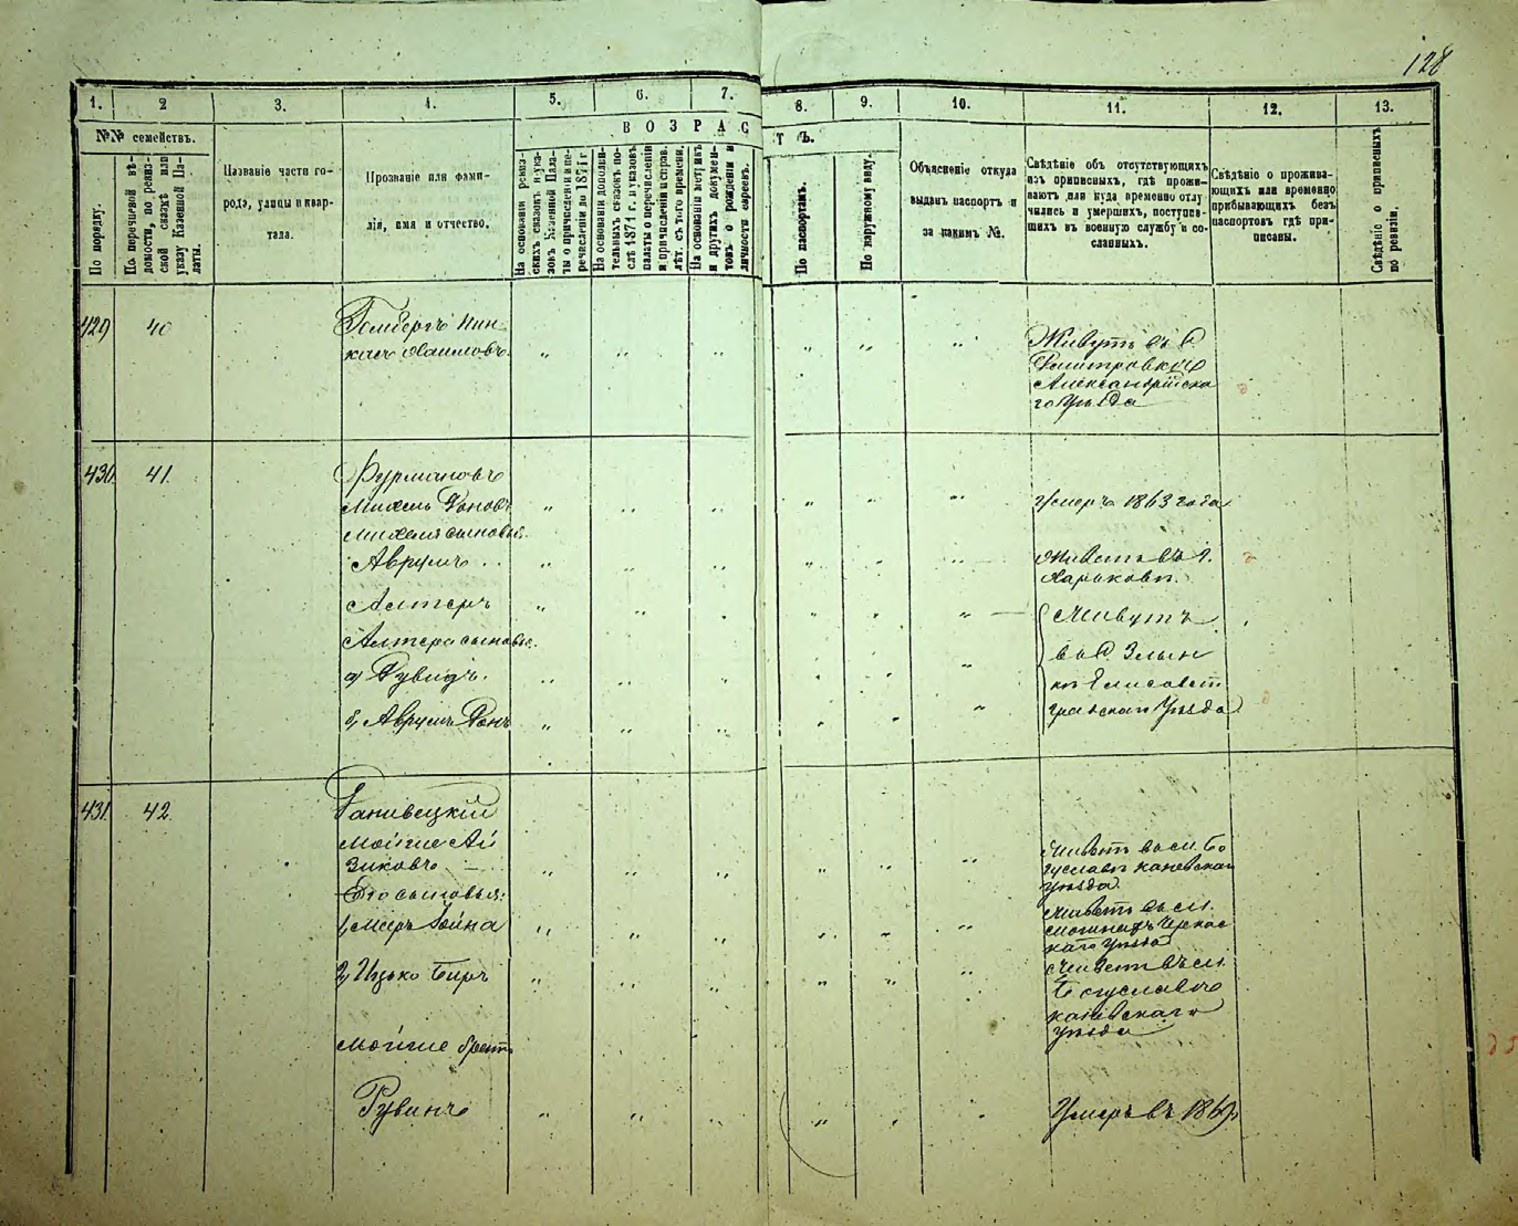 128
1. 2 3. 4. 5. 6. 7. 8. 9. 10. 11. 12. 13.
№№ семействъ.
ВОЗРАСТЪ.
По порядку.
По перечневой вѣ-
домости, по ревиз-
ской сказкѣ или
указу Казенной Па-
латы.
Названіе части го-
рода, улицы и квар-
тала.
Прозваніе или фами-
лія, имя и отчество.
На основаніи ревиз-
скихъ сказокъ и ука-
зокъ Казенной Пала-
ты о причисленіи и пе-
речисленіи до 1871 г
На основаніи дополни-
тельныхъ сказокъ по-
слѣ 1871 г. и указовъ
палаты о перечисленіи
и причисленіи и справ.
лѣт. съ того времени.
На основаніи метрикъ
и другихъ докумен-
товъ о рожденіи и
личности евреевъ.
По паспортамъ.
По наружному виду.
Объясненіе откуда
выданъ паспортъ и
за какимъ №.
Свѣдѣніе объ отсутствующихъ
изъ приписныхъ, гдѣ прожи-
ваютъ или куда временно отлу
чились и умершихъ, поступив-
шихъ въ военную службу и со-
сланныхъ.
Свѣдѣніе о прожива-
ющихъ или временно
прибывающихъ безъ
паспортовъ гдѣ при-
писаны.
Свѣдѣніе о приписныхъ
по ревизіи.
429 40 Гомбергъ Пин-
касъ Хаимовъ. Живутъ въ с
Дмитровкѣ
Александрійска
го Уѣзда
430 41. Фурмановъ
Михель Роновъ Умеръ 1863 года
Михеля сыновья.
Аврумъ Живетъ въ г.
Харьковѣ.
Алтеръ Живутъ
Алтера сыновья. въ с. Злын
а) Рувидъ. кѣ Елисавет
б) Аврумъ Ронъ градскаго Уѣзда
431 42. Ганивецкій
Мойше Ай
зиковъ Живетъ въ м. Бо
гуславѣ Каневскаго
уѣзда
Его сыновья:
1, Мееръ Живетъ въ м.
Черкас
каго уѣзда
2, Ицько Беръ Живетъ въ м.
Богуславѣ
каневскаго
уѣзда
Мойше братъ
Рувинъ Умеръ въ 1869